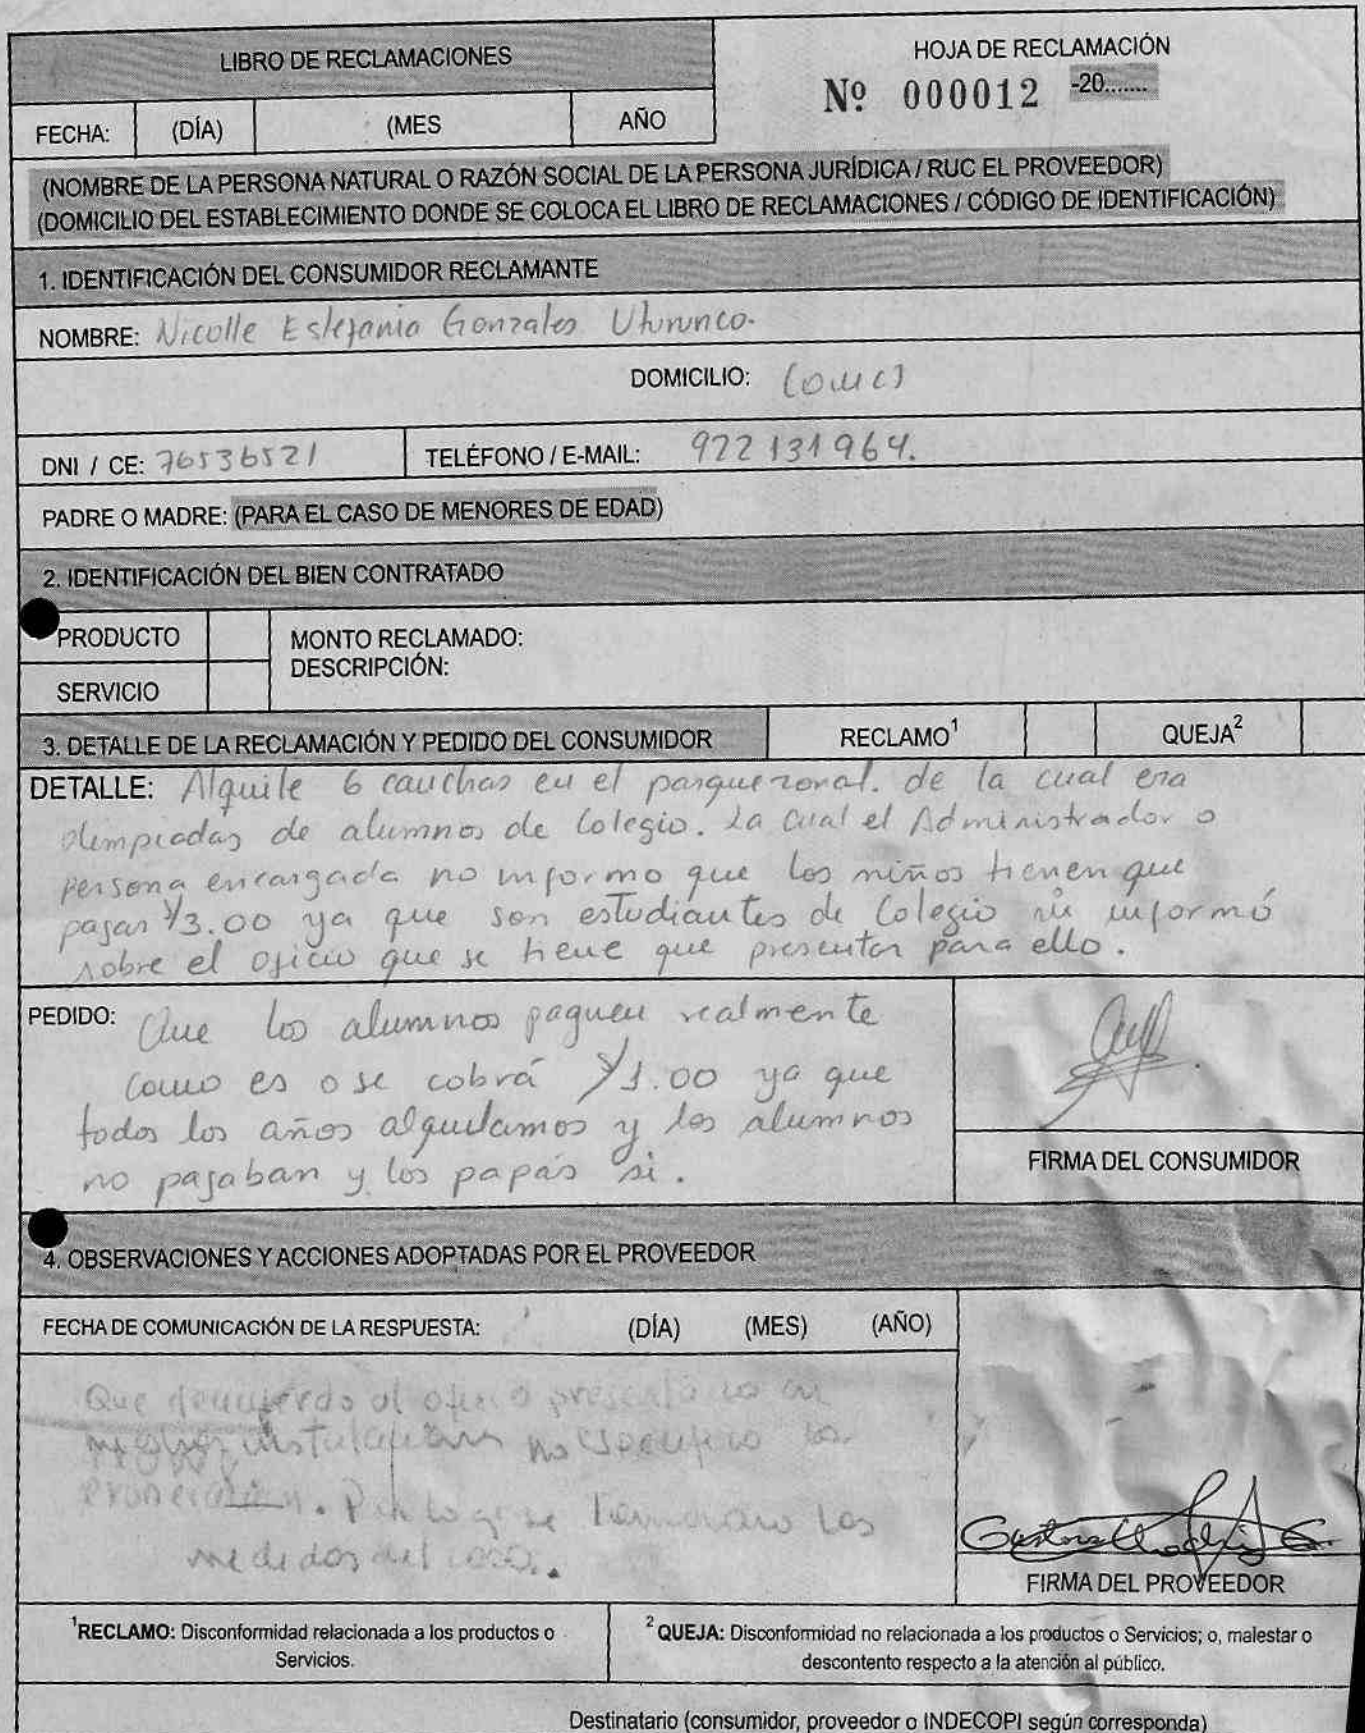 LIBRO DE RECLAMACIONES
HOJA DE RECLAMACIÓN
Nº 000012 -20.......
FECHA: (DÍA) (MES AÑO
(NOMBRE DE LA PERSONA NATURAL O RAZÓN SOCIAL DE LA PERSONA JURÍDICA / RUC EL PROVEEDOR)
(DOMICILIO DEL ESTABLECIMIENTO DONDE SE COLOCA EL LIBRO DE RECLAMACIONES / CÓDIGO DE IDENTIFICACIÓN)
1. IDENTIFICACIÓN DEL CONSUMIDOR RECLAMANTE
NOMBRE: Nicolle Estefania Gonzales Uturunco.
DOMICILIO:
DNI / CE: 76536521 TELÉFONO / E-MAIL: 922 131 964.
PADRE O MADRE: (PARA EL CASO DE MENORES DE EDAD)
2. IDENTIFICACIÓN DEL BIEN CONTRATADO
PRODUCTO
MONTO RECLAMADO:
DESCRIPCIÓN:
SERVICIO
3. DETALLE DE LA RECLAMACIÓN Y PEDIDO DEL CONSUMIDOR RECLAMO¹ QUEJA²
DETALLE: Alquile 6 canchas en el parque zonal. de la cual era
olimpiadas de alumnos de Colegio. La cual el Administrador o
persona encargada no informo que los niños tienen que
pagar S/3.00 ya que son estudiantes de Colegio ni informó
sobre el oficio que se tiene que presentar para ello.
PEDIDO: Que los alumnos paguen realmente
como es o se cobrá S/1.00 ya que
todos los años alquilamos y los alumnos
no pagaban y los papás si.
FIRMA DEL CONSUMIDOR
4. OBSERVACIONES Y ACCIONES ADOPTADAS POR EL PROVEEDOR
FECHA DE COMUNICACIÓN DE LA RESPUESTA: (DÍA) (MES) (AÑO)
Que al
no
medidas del caso..
FIRMA DEL PROVEEDOR
¹RECLAMO: Disconformidad relacionada a los productos o
Servicios.
² QUEJA: Disconformidad no relacionada a los productos o Servicios; o, malestar o
descontento respecto a la atención al público.
Destinatario (consumidor, proveedor o INDECOPI según corresponda)